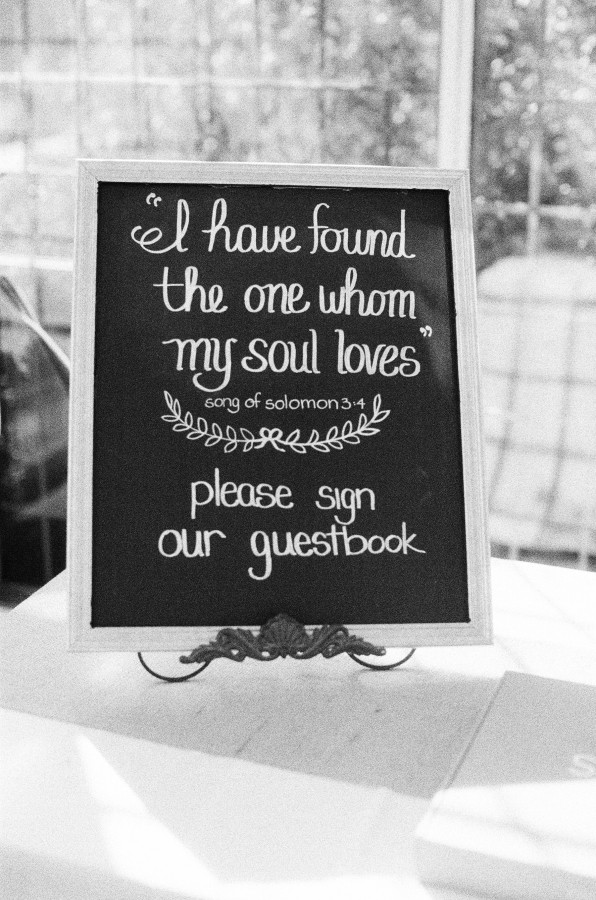 “I have found
the one whom
my soul loves”
song of solomon 3:4
please sign
our guestbook